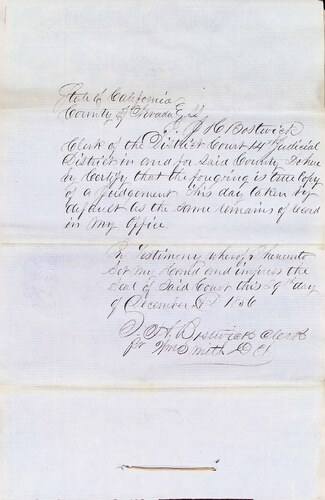 State of California
County of Nevada } ss
I. J. H. Bostwick
Clerk of the District Court 14th Judicial
District in and for said County do here
by Certify that the forgoing is true Copy
of a Judgement this day taken by
default as the same remains of record
in my Office.
In Testimony whereof I hereunto
Set my hand and impress the
Seal of Said Court this 9th day
of December A.D. 1856
J. H. Bostwick Clerk
for Wm Smith D C